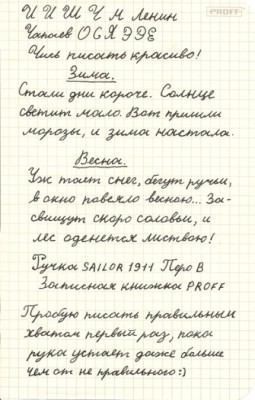 PROFF
И И Ш Ч М Ленин
Чапаев О С Я Э Д Е
Учись писать красиво!
Зима.
Стали дни короче. Солнце
светит мало. Вот пришли
морозы, и зима настала.
Весна.
Уж тает снег, бегут ручьи,
в окно повеяло весною... За-
свищут скоро соловьи, и
лес оденется листвою!
Ручка SAILOR 1911 Перо В
Записная книжка PROFF
Пробую писать правильным
хватом первый раз, пока
рука устает даже больше
чем от не правильного:)